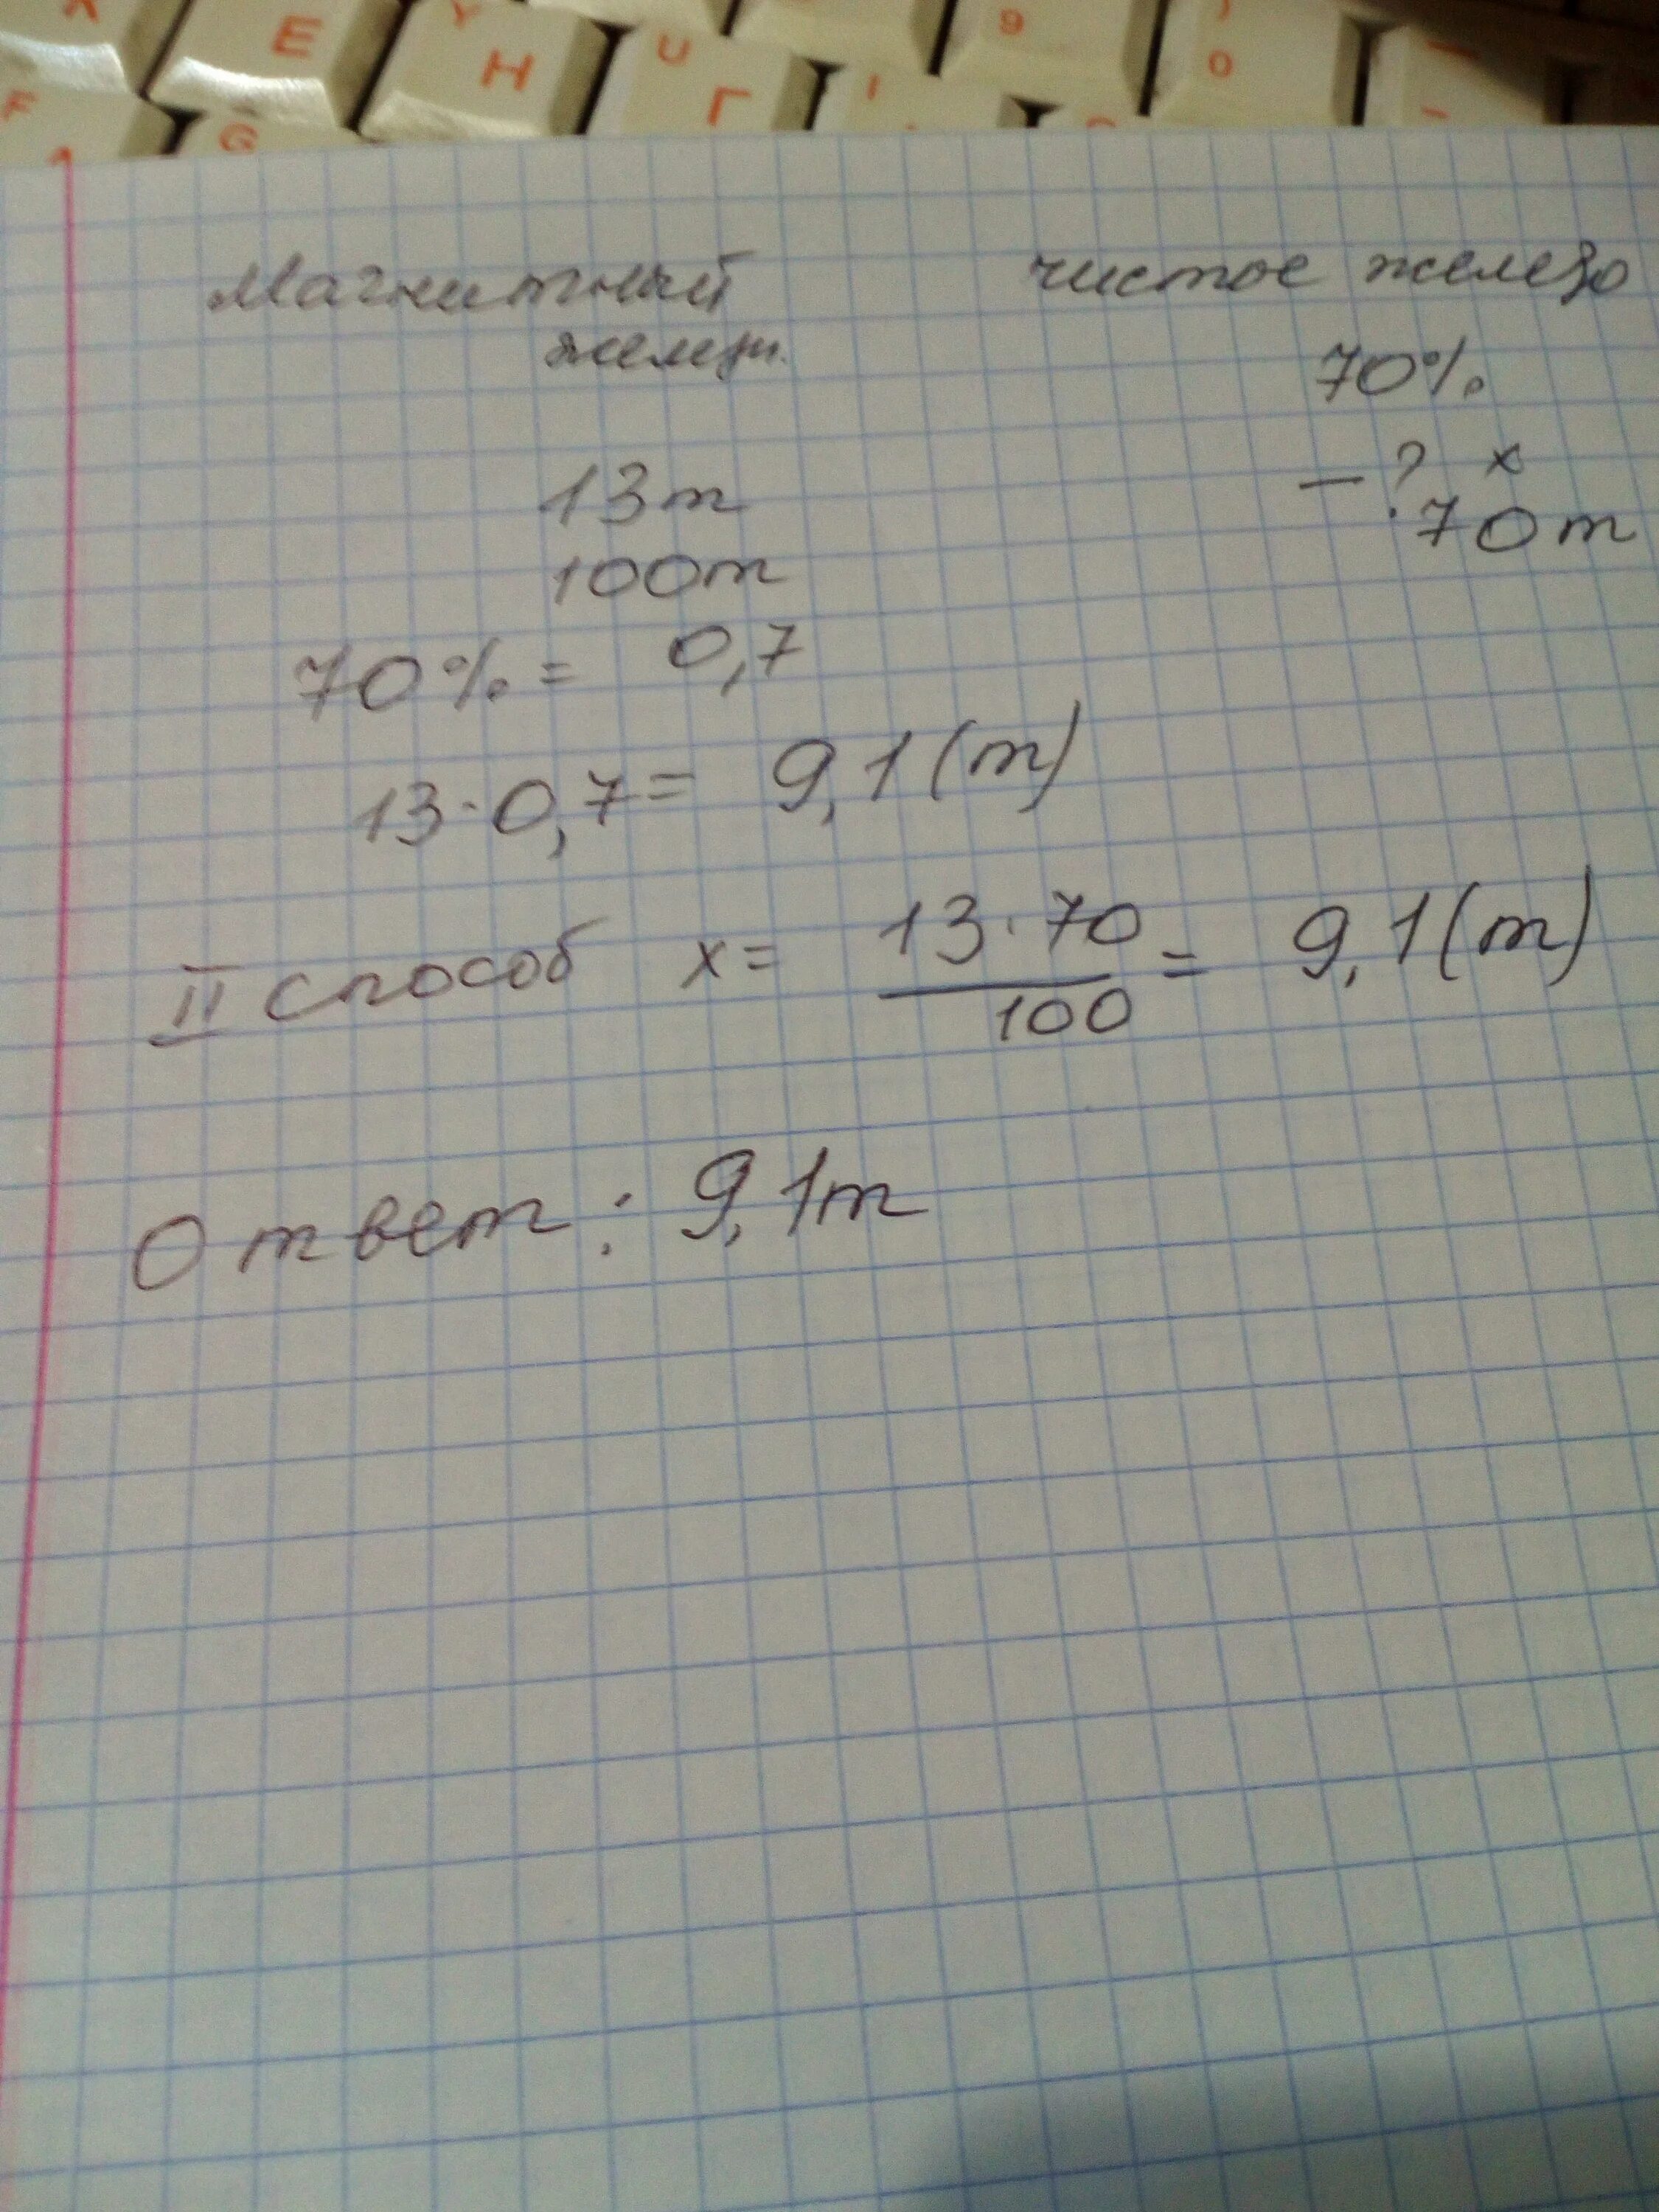 E
Y
Н
U
Г
I
9
)
0
F
G
Магнитный чистое железо
желез. 70%
13т – ? х
100т 70т
70% = 0,7
13·0,7= 9,1(т)
II способ х= 13·70
100 = 9,1(т)
Ответ: 9,1т